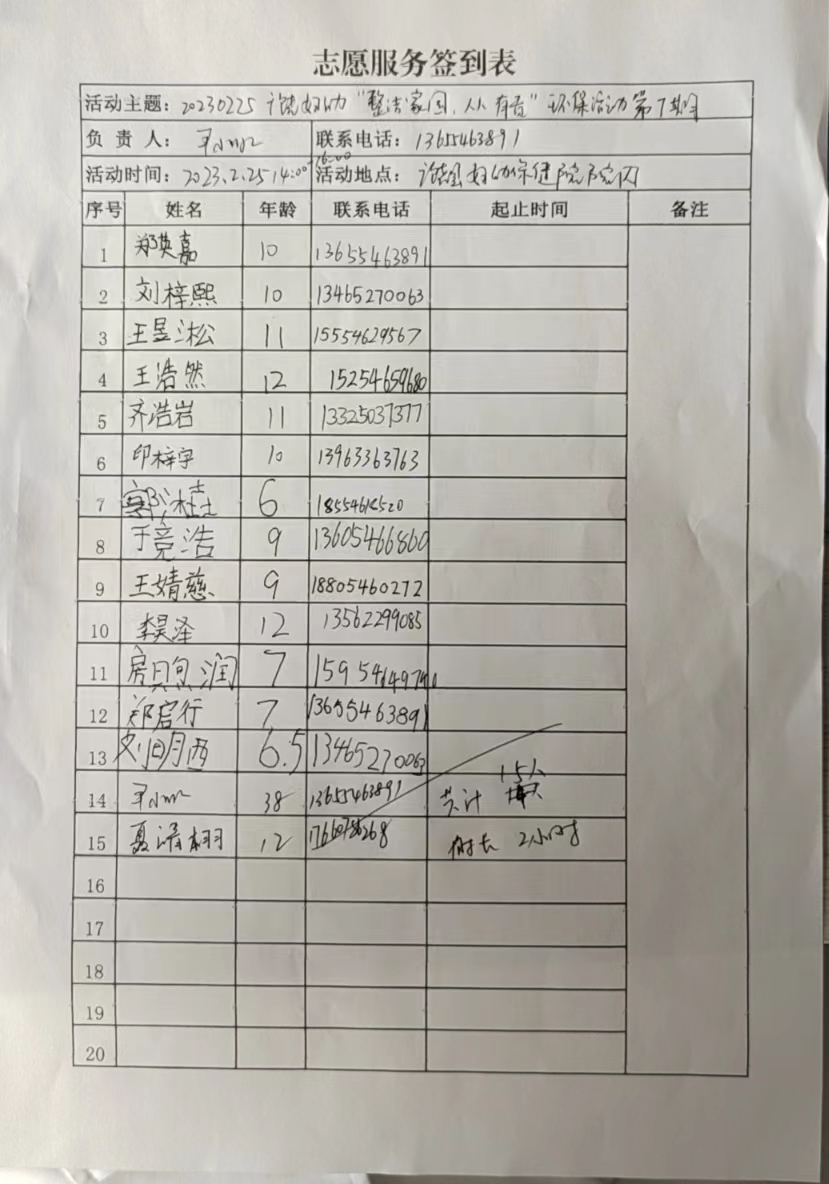 志愿服务签到表
活动主题：20230225 妇幼"整洁家园，人人有责"环保活动第7期
负责人： 联系电话：13655463891
活动时间：2023.2.25 14:00-16:00 活动地点：妇幼保健院院内
序号 姓名 年龄 联系电话 起止时间 备注
1 郑英嘉 10 13655463891
2 刘梓熙 10 13465270063
3 王昱淞 11 15554629567
4 王浩然 12 15254659680
5 齐浩岩 11 13325037377
6 印梓宇 10 13963363763
7 6 18554618520
8 于竞浩 9 13605466860
9 王婧慈 9 18805460272
10 李昊泽 12 13562299085
11 房贝润 7
12 郑启行 7 13655463891
13 刘明西 6.5 13465270063
14 38 13655463891 共计 15人
15 夏 12 时长 2小时
16
17
18
19
20